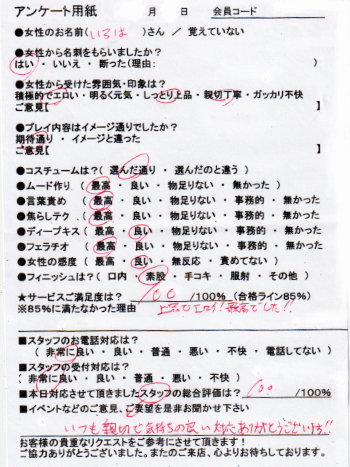 アンケート用紙　月　日　会員コード
●女性のお名前(いろは)さん / 覚えていない
●女性から名刺をもらいましたか?
はい・いいえ・断った(理由:　)
●女性から受けた雰囲気・印象は?
積極的でエロい・明るく元気・しっとり上品・親切丁寧・ガッカリ不快
ご意見【　】
●プレイ内容はイメージ通りでしたか?
期待通り・イメージと違った
ご意見【　】
●コスチュームは?( 選んだ通り・選んだのと違う )
●ムード作り ( 最高・良い・物足りない・無かった )
●言葉責め ( 最高・良い・物足りない・事務的・無かった )
●焦らしテク ( 最高・良い・物足りない・事務的・無かった )
●ディープキス( 最高・良い・物足りない・事務的・無かった )
●フェラチオ ( 最高・良い・物足りない・事務的・無かった )
●女性の感度 ( 最高・良い・無反応・責めてない )
●フィニッシュは?( 口内・素股・手コキ・服射・その他 )
★サービスご満足度は? 100 /100% (合格ライン85%)
※85%に満たなかった理由 上品でエロい!最高でした!!
■スタッフのお電話対応は?
( 非常に良い・良い・普通・悪い・不快・電話してない )
■スタッフの受付対応は?
( 非常に良い・良い・普通・悪い・不快 )
■本日対応させて頂きましたスタッフの総合評価は? 100 /100%
■イベントなどのご意見、ご要望を是非お聞かせ下さい
いつも親切で気持ちの良い対応ありがとうございます!!
お客様の貴重なリクエストをご参考にさせて頂きます!
ご協力ありがとうございました。またのご来店、心よりお待ちしております。